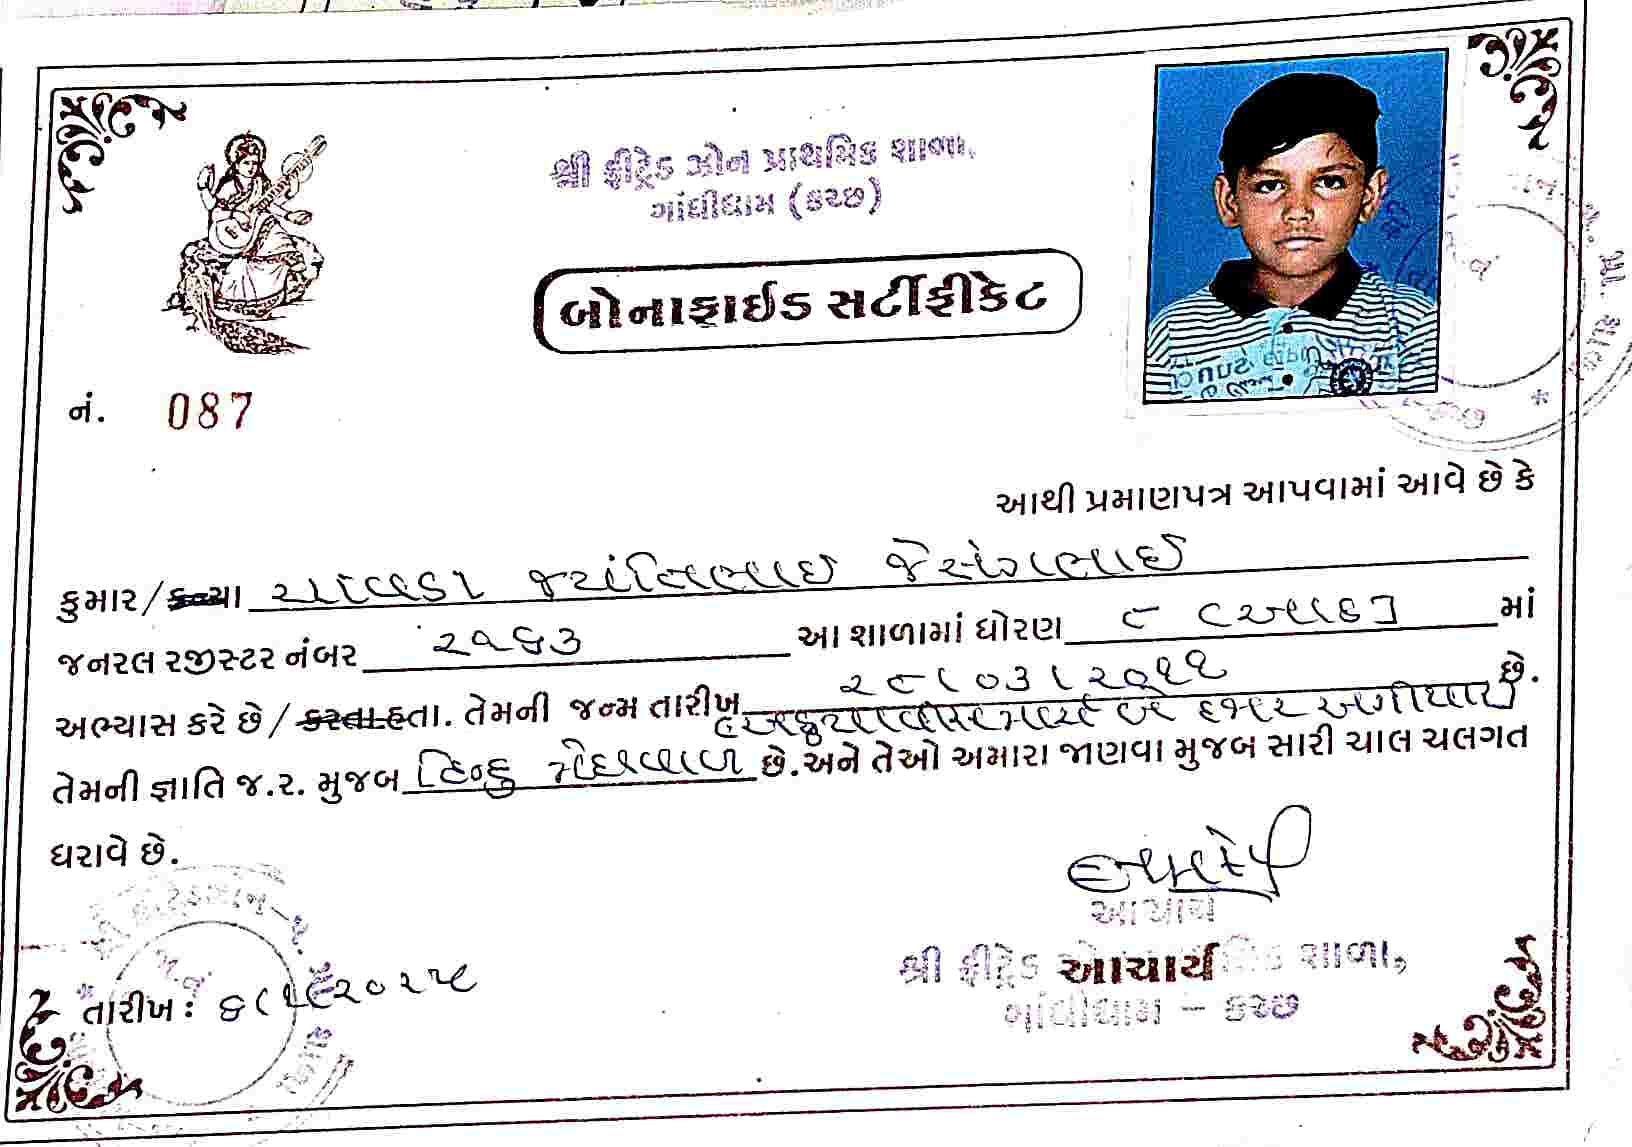 શ્રી ફ્રીટ્રેડ ઝોન પ્રાથમિક શાળા,
ગાંધીધામ (કચ્છ)
બોનાફાઈડ સર્ટીફીકેટ
નં. 087
આથી પ્રમાણપત્ર આપવામાં આવે છે કે
કુમાર/કન્યા ચાવડા જયંતિભાઈ જેસંગભાઈ
જનરલ રજીસ્ટર નંબર ૨૧૬૩ આ શાળામાં ધોરણ ૮ (આઠ) માં
અભ્યાસ કરે છે/કરતા હતા. તેમની જન્મ તારીખ ૨૮/૦૩/૨૦૧૧ છે.
અઠ્ઠયાવીસ માર્ચ બે હજાર અગીયાર
તેમની જ્ઞાતિ જ.ર. મુજબ હિન્દુ મેઘવાળ છે.અને તેઓ અમારા જાણવા મુજબ સારી ચાલ ચલગત
ધરાવે છે.
આચાર્ય
શ્રી ફ્રીટ્રેડ આચાર્ય શાળા,
ગાંધીધામ - કચ્છ
તારીખ: ૨૦૨૫